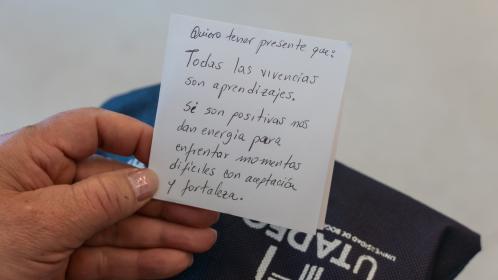 Quiero tener presente que:
Todas las vivencias
son aprendizajes.
Si son positivas nos
dan energía para
enfrentar momentos
difíciles con aceptación
y fortaleza.
UTADEO
UNIVERSIDAD DE BOG